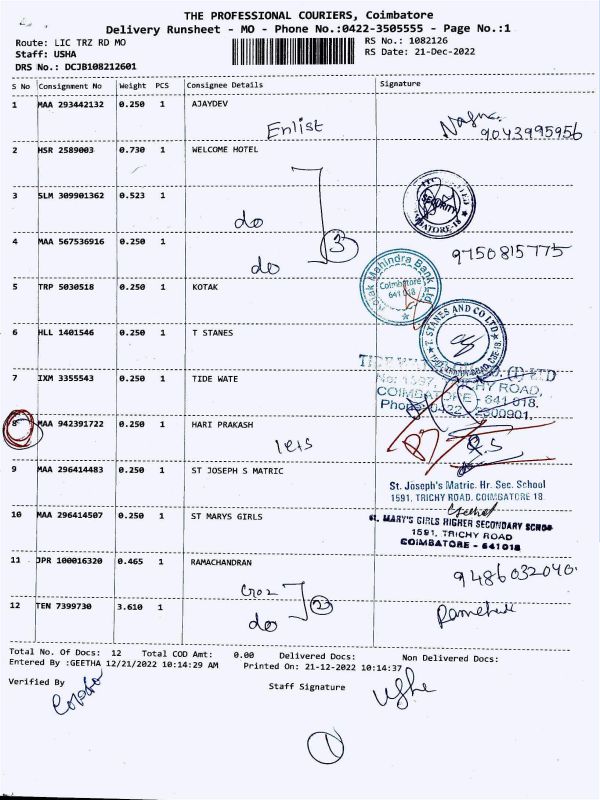 THE PROFESSIONAL COURIERS, Coimbatore
Delivery Runsheet - MO - Phone No.:0422-3505555 - Page No.:1
Route: LIC TRZ RD MO
Staff: USHA
DRS No.: DCJB108212601
RS No.: 1082126
RS Date: 21-Dec-2022
S No Consignment No Weight PCS Consignee Details Signature
1 MAA 293442132 0.250 1 AJAYDEV
Enlist
9043995956
2 HSR 2589003 0.730 1 WELCOME HOTEL
3 SLM 309901362 0.523 1
SECURITY
do 3
4 MAA 567536916 0.250 1
do
9750815775
5 TRP 5030518 0.250 1 KOTAK
Kotak Mahindra Bank Ltd
Coimbatore
641 018
6 HLL 1401546 0.250 1 T STANES
T. STANES AND CO LTD
7 IXM 3355543 0.250 1 TIDE WATE
(I) LTD
No: 1597, TRICHY ROAD,
COIMBATORE - 641 018.
Phone: 0422 - 2300901.
8 MAA 942391722 0.250 1 HARI PRAKASH
9 MAA 296414483 0.250 1 ST JOSEPH S MATRIC
St. Joseph's Matric. Hr. Sec. School
1591, TRICHY ROAD, COIMBATORE 18.
10 MAA 296414507 0.250 1 ST MARYS GIRLS
ST. MARY'S GIRLS HIGHER SECONDARY SCHOO
1591, TRICHY ROAD
COIMBATORE - 641018
11 JPR 100016320 0.465 1 RAMACHANDRAN
9486032040
12 TEN 7399730 3.610 1
do
Total No. Of Docs: 12 Total COD Amt: 0.00 Delivered Docs: Non Delivered Docs:
Entered By :GEETHA 12/21/2022 10:14:29 AM Printed On: 21-12-2022 10:14:37
Verified By
Staff Signature
1